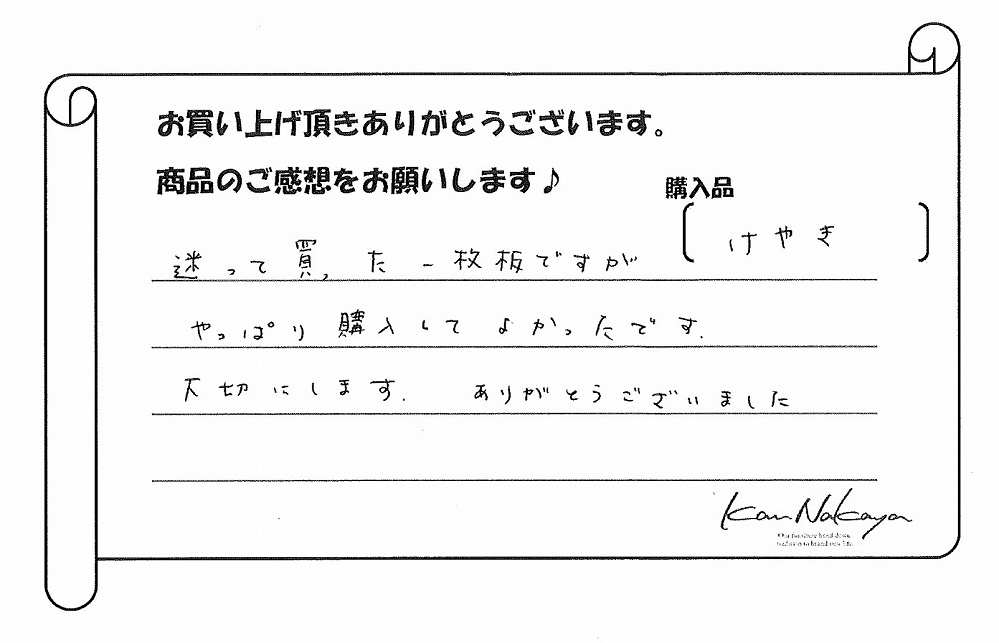 お買い上げ頂きありがとうございます。
商品のご感想をお願いします♪
購入品
けやき
迷って買った一枚板ですが
やっぱり購入してよかったです.
大切にします. ありがとうございました
Kan Nakaya
Our furniture hand down
tradition to brand new life.